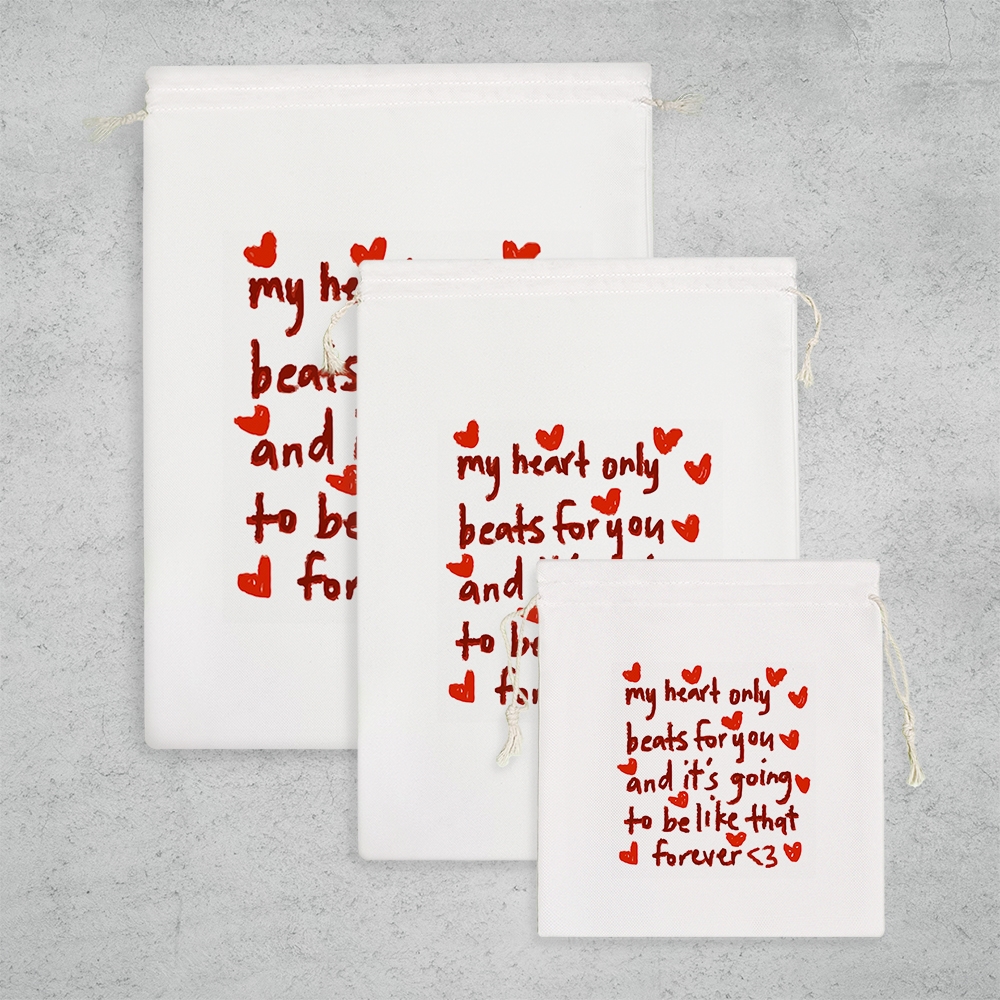 my he
beats
and
to be
for
my heart only
beats for you
and
to be
for
my heart only
beats for you
and it's going
to be like that
forever <3